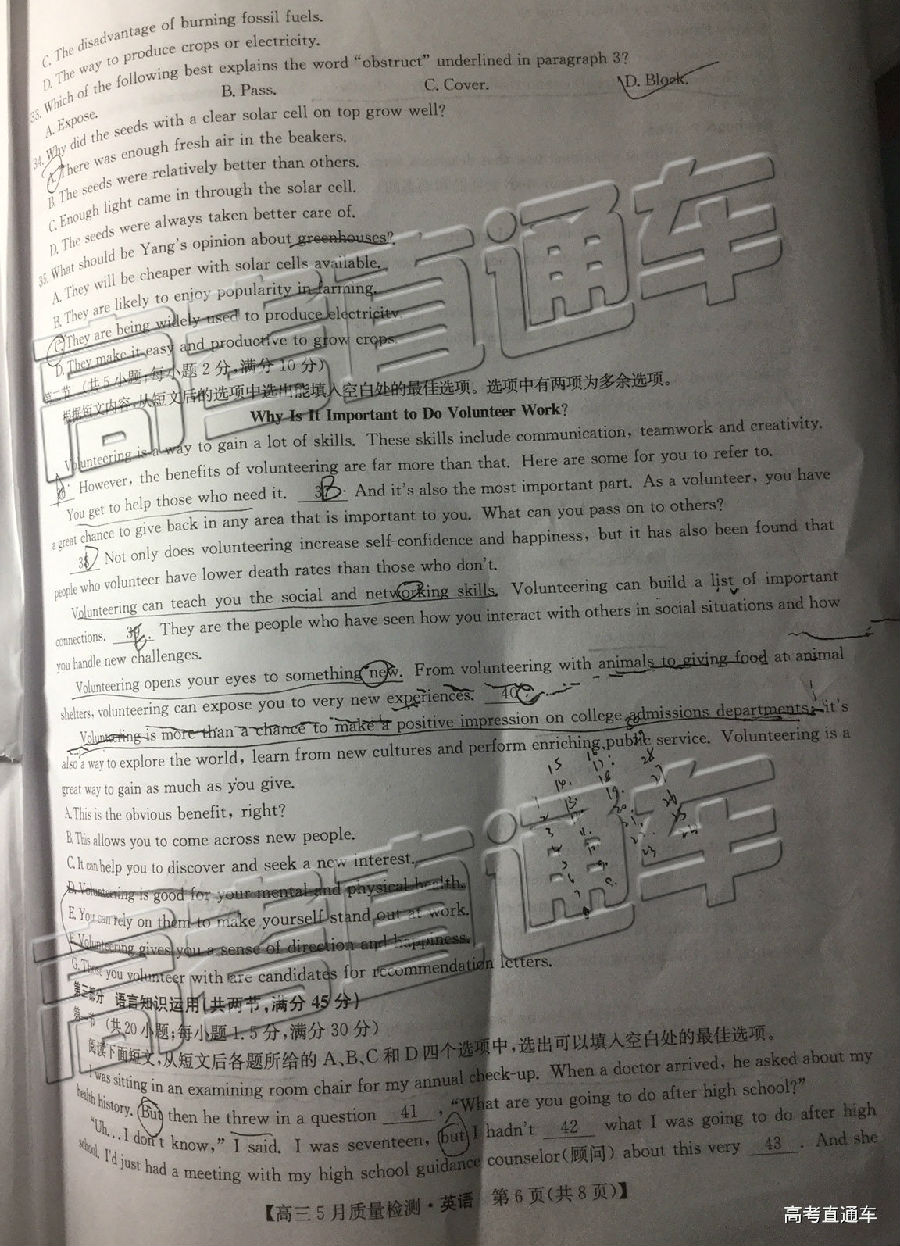 C. The disadvantage of burning fossil fuels.
D. The way to produce crops or electricity.
33. Which of the following best explains the word “obstruct” underlined in paragraph 3?
A. Expose. B. Pass. C. Cover. D. Block.
34. Why did the seeds with a clear solar cell on top grow well?
A. There was enough fresh air in the beakers.
B. The seeds were relatively better than others.
C. Enough light came in through the solar cell.
D. The seeds were always taken better care of.
35. What should be Yang's opinion about greenhouses?
A. They will be cheaper with solar cells available.
B. They are likely to enjoy popularity in farming.
C. They are being widely used to produce electricity.
D. They make it easy and productive to grow crops.
第二节 (共5小题;每小题2分,满分10分)
根据短文内容,从短文后的选项中选出能填入空白处的最佳选项。选项中有两项为多余选项。
Why Is It Important to Do Volunteer Work?
Volunteering is a way to gain a lot of skills. These skills include communication, teamwork and creativity.
However, the benefits of volunteering are far more than that. Here are some for you to refer to.
You get to help those who need it. And it's also the most important part. As a volunteer, you have
a great chance to give back in any area that is important to you. What can you pass on to others?
Not only does volunteering increase self-confidence and happiness, but it has also been found that
people who volunteer have lower death rates than those who don't.
Volunteering can teach you the social and networking skills. Volunteering can build a list of important
connections. They are the people who have seen how you interact with others in social situations and how
you handle new challenges.
Volunteering opens your eyes to something new. From volunteering with animals to giving food at animal
shelters, volunteering can expose you to very new experiences. 40
Volunteering is more than a chance to make a positive impression on college admissions departments; it's
also a way to explore the world, learn from new cultures and perform enriching public service. Volunteering is a
great way to gain as much as you give.
A. This is the obvious benefit, right?
B. This allows you to come across new people.
C. It can help you to discover and seek a new interest.
D. Volunteering is good for your mental and physical health.
E. You can rely on them to make yourself stand out at work.
F. Volunteering gives you a sense of direction and happiness.
G. Those you volunteer with are candidates for recommendation letters.
第三部分 语言知识运用(共两节,满分45分)
第一节 (共20小题;每小题1.5分,满分30分)
阅读下面短文,从短文后各题所给的A、B、C和D四个选项中,选出可以填入空白处的最佳选项。
was sitting in an examining room chair for my annual check-up. When a doctor arrived, he asked about my
health history. But then he threw in a question 41 , “What are you going to do after high school?”
“Uh...I don't know,” I said. I was seventeen, but I hadn't 42 what I was going to do after high
school. I'd just had a meeting with my high school guidance counselor(顾问) about this very 43 . And she
【高三5月质量检测·英语 第6页(共8页)】
高考直通车
高考直通车
高考直通车